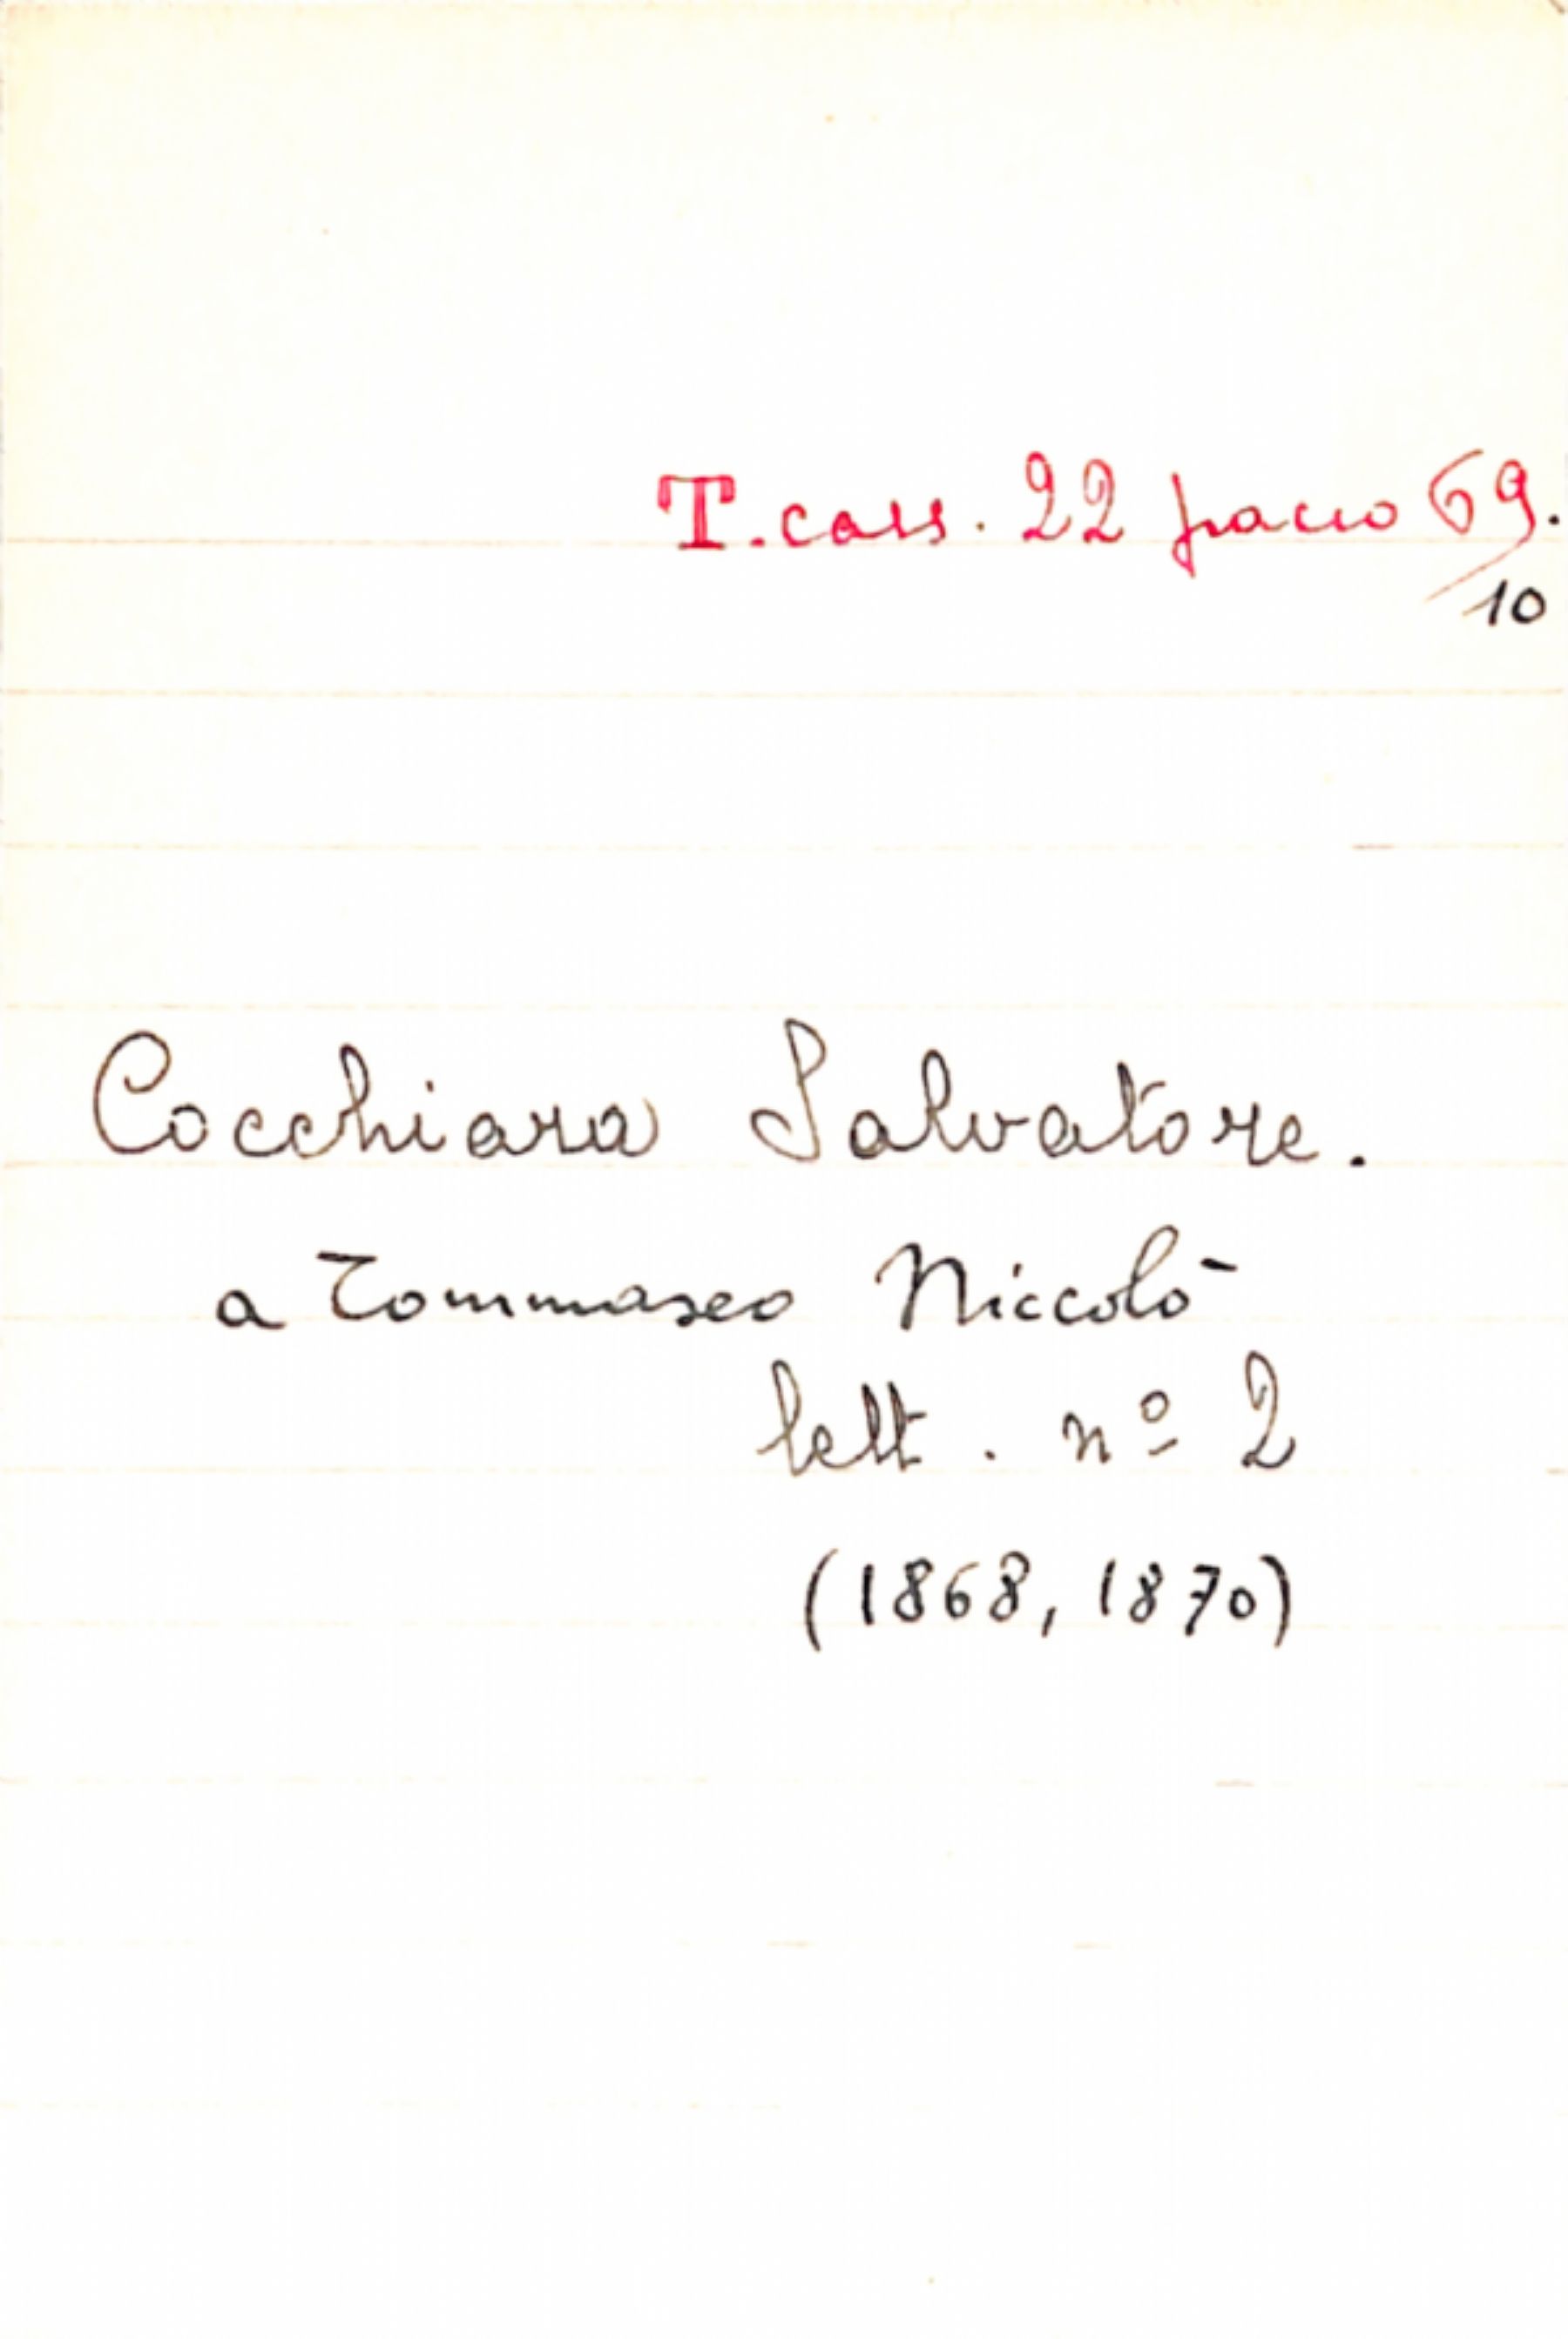 T. cass. 22 pacco 69.
10
Cocchiara Salvatore.
a Tommaseo Niccolò
lett. nº 2
(1868, 1870)